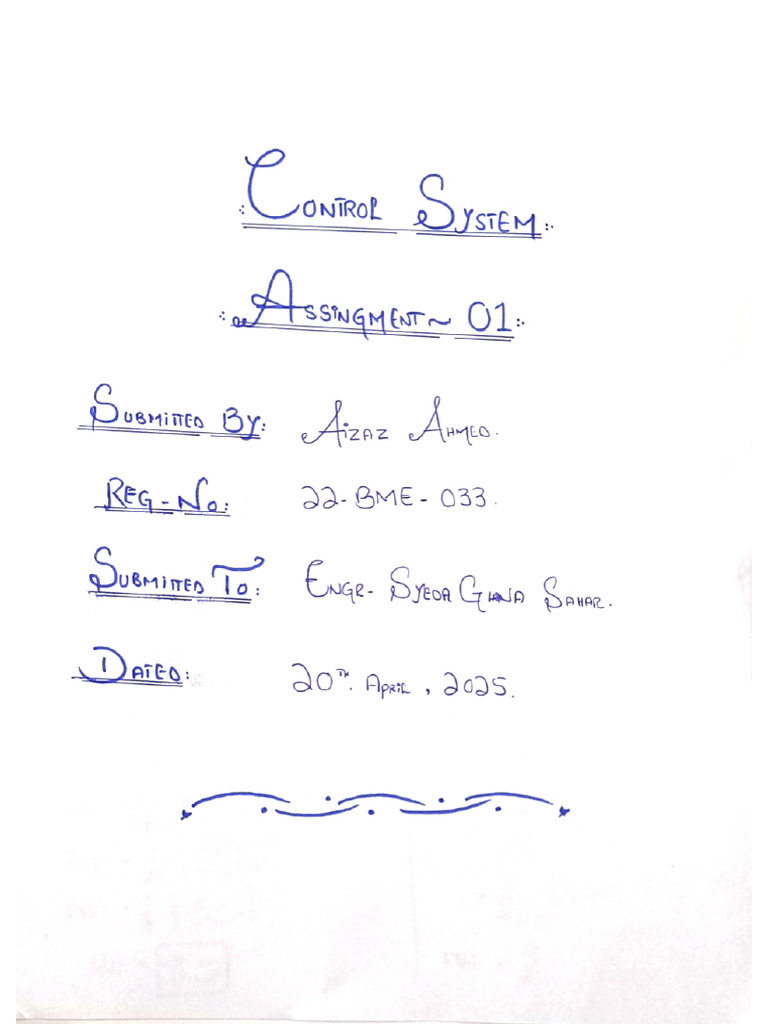 Control System
Assingment ~ 01
Submitted By: Aizaz Ahmed.
Reg-No: 22-BME-033.
Submitted To: Engr- Syeda Ghana Sahar.
Dated: 20th. April, 2025.